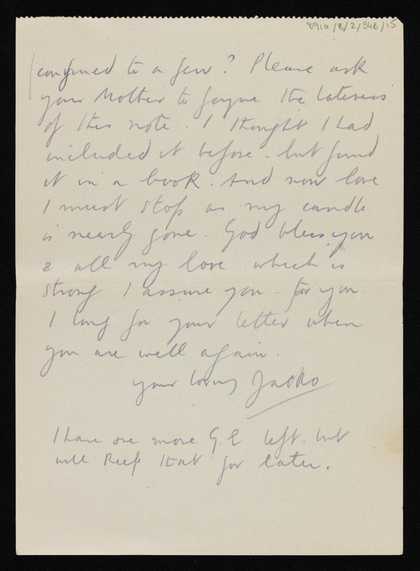 8910/8/2/346/15
confined to a few? Please ask
your Mother to forgive the lateness
of this note. I thought I had
included it before. but found
it in a book. And now love
I must stop as my candle
is nearly gone. God bless you
& all my love which is
strong I assure you. for you.
I long for your letter when
you are well again.
your loving Jacko
I have one more G E left. but
will keep that for later.